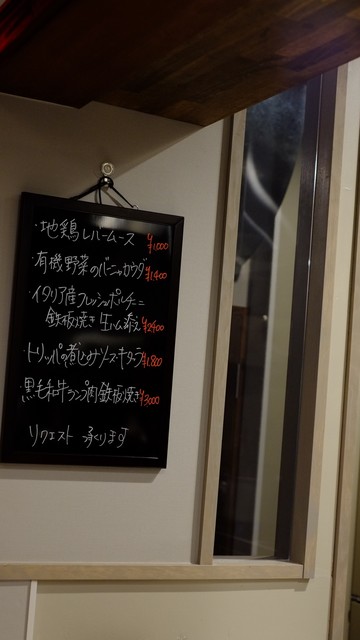 ・地鶏レバームース ¥1,000
・有機野菜のバーニャカウダ ¥1,400
・イタリア産フレッシュポルチーニ
鉄板焼き 生ハム添え ¥2400
・トリッパの煮込みソース キターラ ¥1,800
・黒毛和牛ランプ肉鉄板焼き ¥3000
リクエスト 承ります